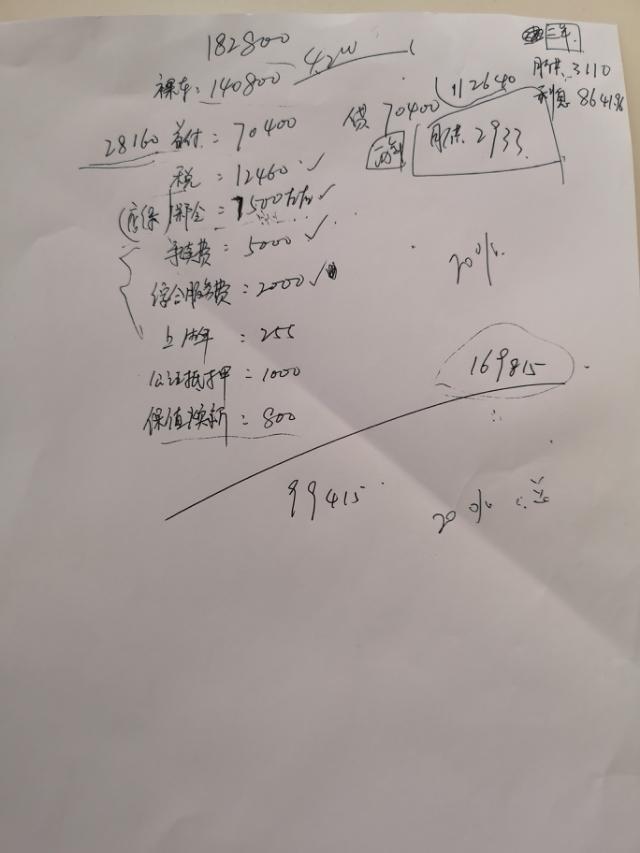 182800 4.2W
三年
裸车:140800
月供 3110
利息 8641
28160 首付:70400
贷 70400 112640
两年 月供 2933
税:12460
(店保) 押金:7500左右
手续费:5000
综合服务费:2000
20%
上牌:255
公证抵押:1000
169815
保值换新:800
99415
20%